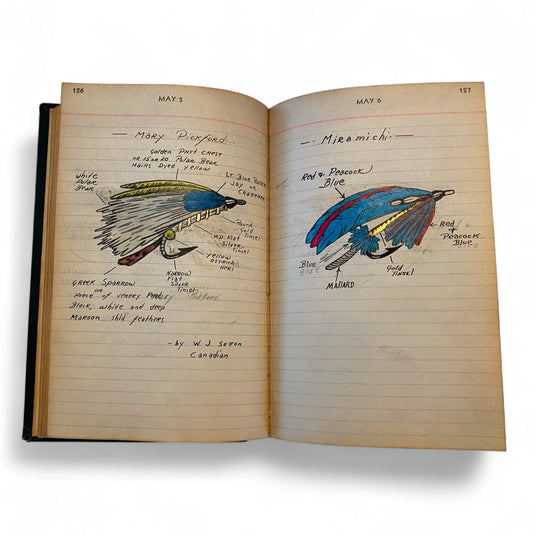 126
MAY 5
— Mary Pickford —
Golden Phst Crest
or 15 or 20 Polar Bear
Hairs Dyed Yellow
White
Polar
Bear
Lt Blue
Jay or
Chatterer
Round
Gold
Tinsel
MD. Flat
Silver
Tinsel
Yellow
Ostrich
Herl
Narrow
Flat
Silver
Tinsel
Greek Sparrow
or
Piece of Veniery
Black, white and deep
Maroon shld feathers.
— by W. J. Sutton
Canadian
127
MAY 6
— Miramichi —
Red & Peacock
Blue
Red
&
Peacock
Blue
Blue
Mallard
Gold
Tinsel